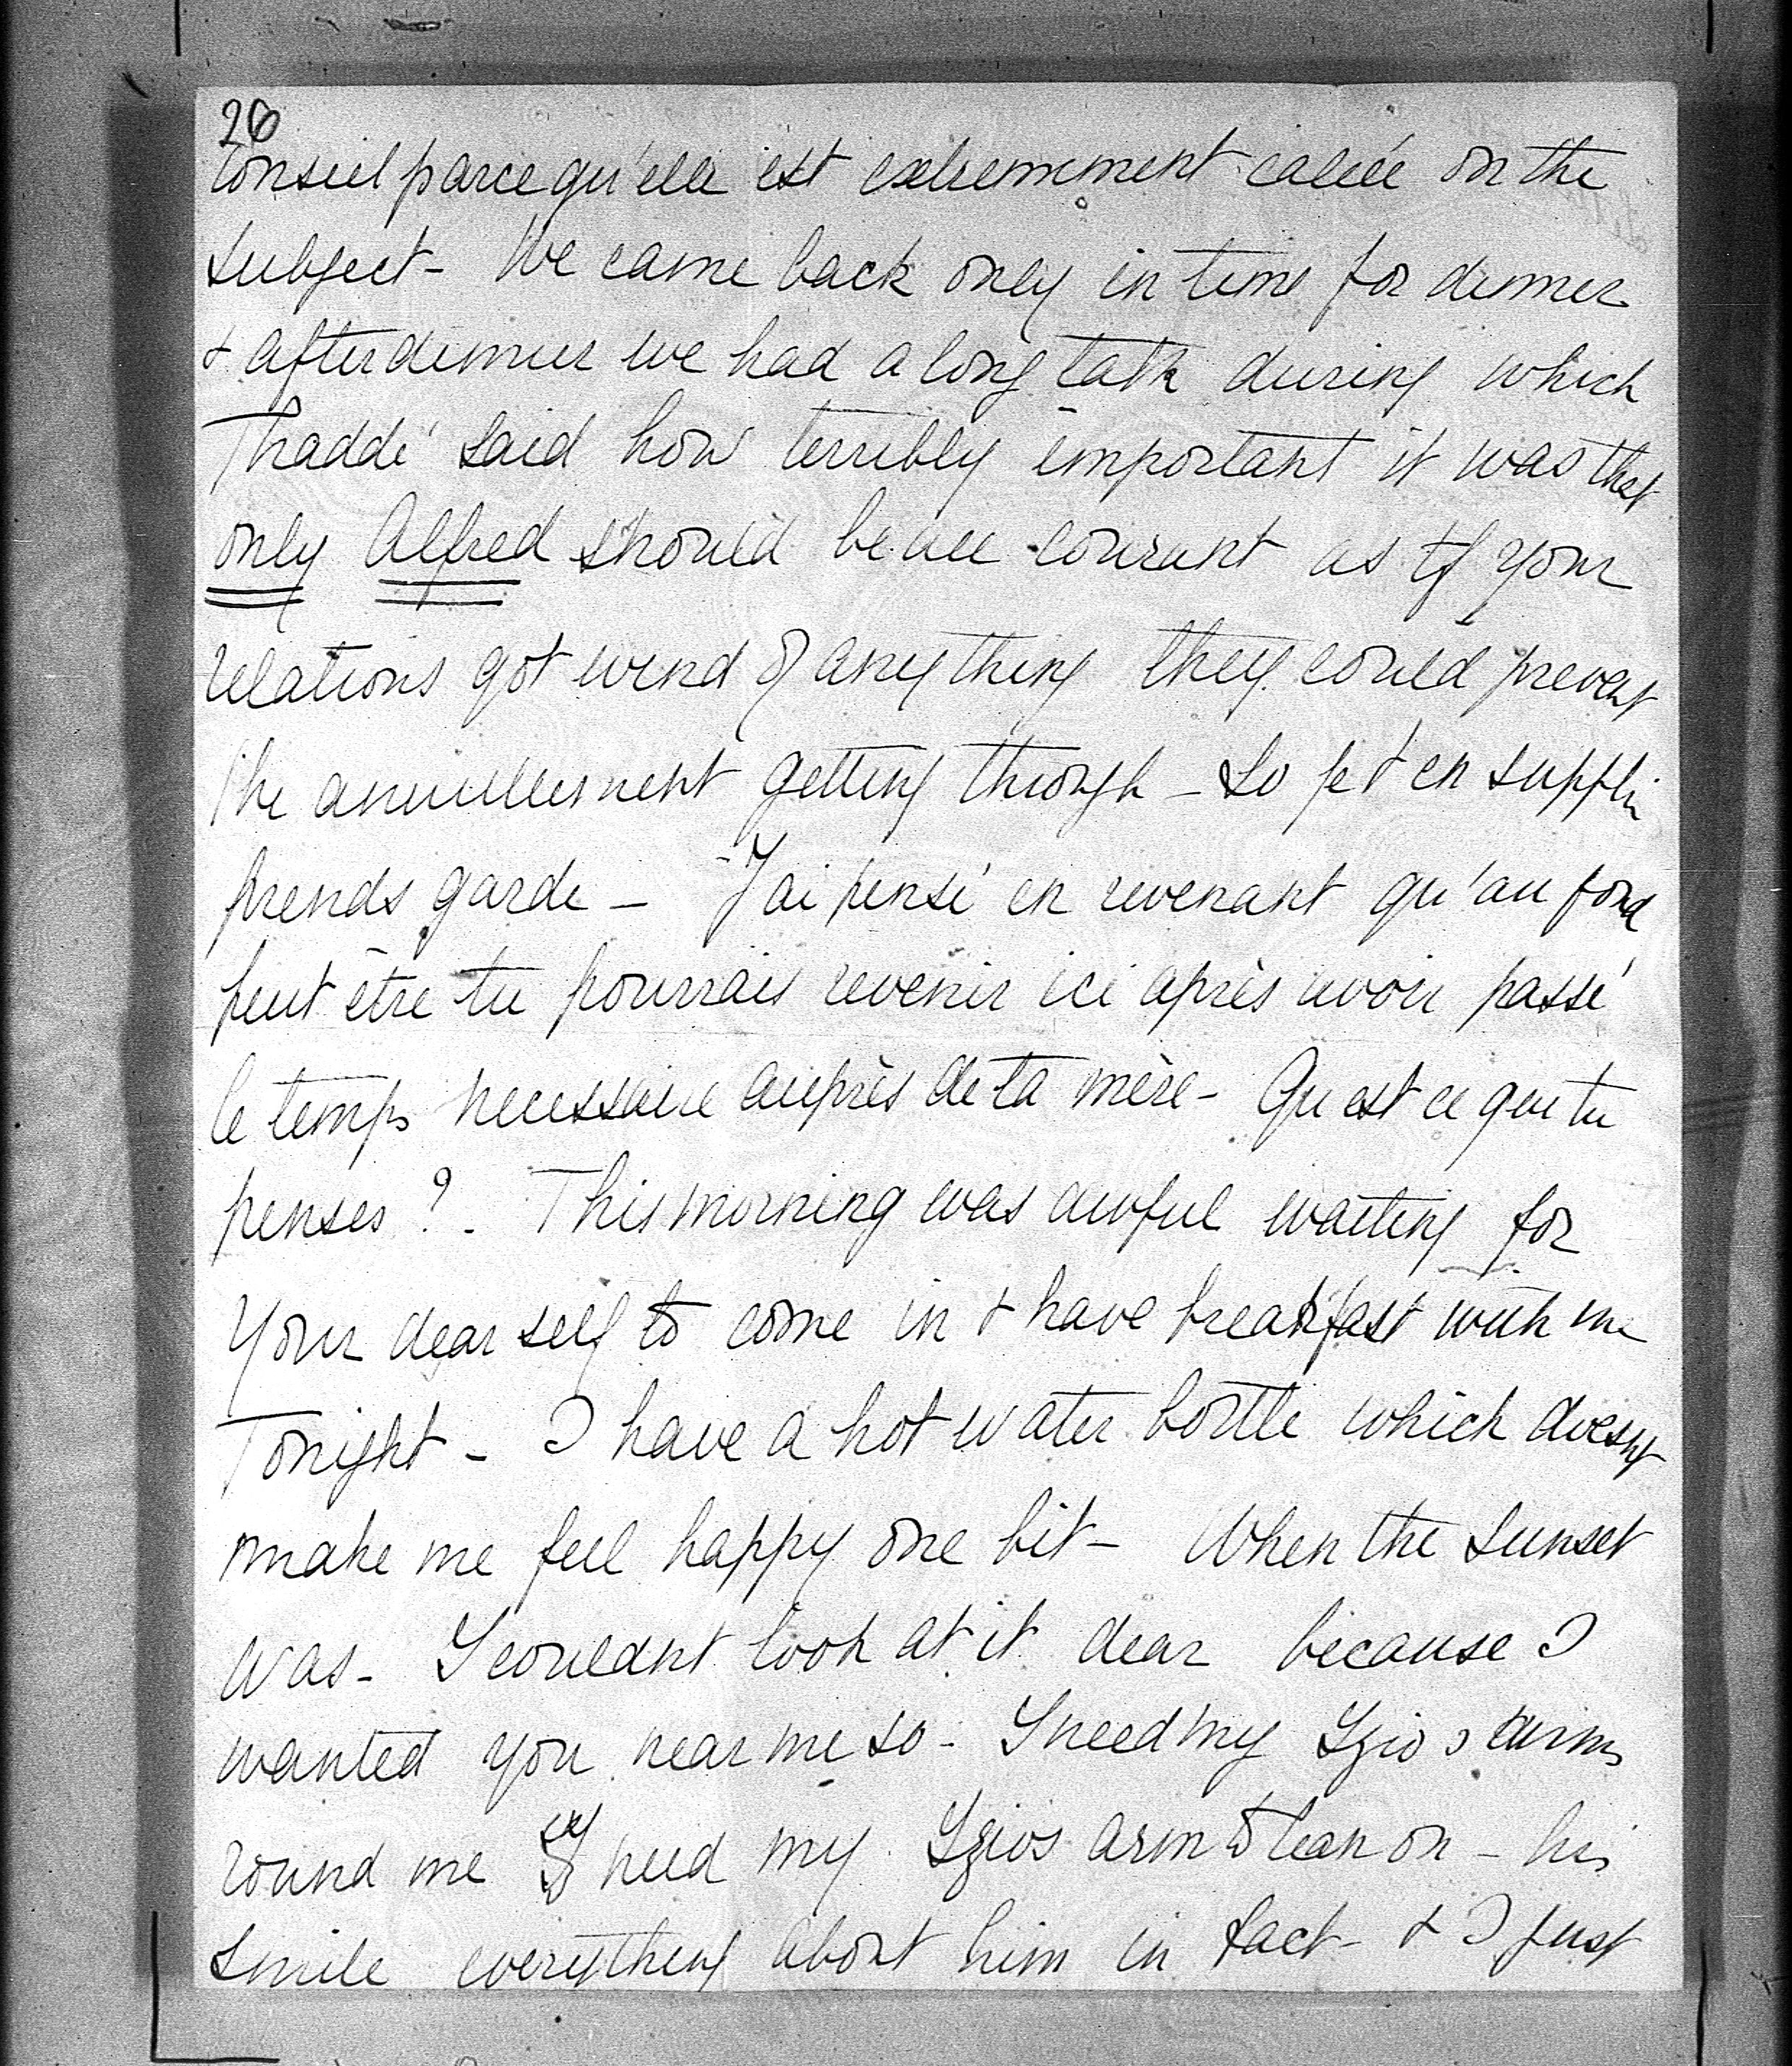 26
Conseil parcequ'elle est extremement calée on the
subject - We came back only in time for dinner
& after dinner we had a long talk during which
Thaddé said how terribly important it was that
only Alfred should be au courant as if your
relations got wind of anything they could prevent
the annullement getting through - So je t'en supplie
prends garde - J'ai pensé en revenant qu'au fond
peut être tu pourrais revenir ici après avoir passé
le temps necessaire auprès de ta mère - Qu est ce que tu
penses ? - This morning was awful waiting for
Your dear self to come in & have breakfast with me
Tonight - I have a hot water bottle which doesnt
make me feel happy one bit - When the sunset
was - I couldnt look at it dear because I
wanted you near me so - I need my Lzios arms
round me I need my Lzios arm to lean on - his
smile everything about him in fact - & I just